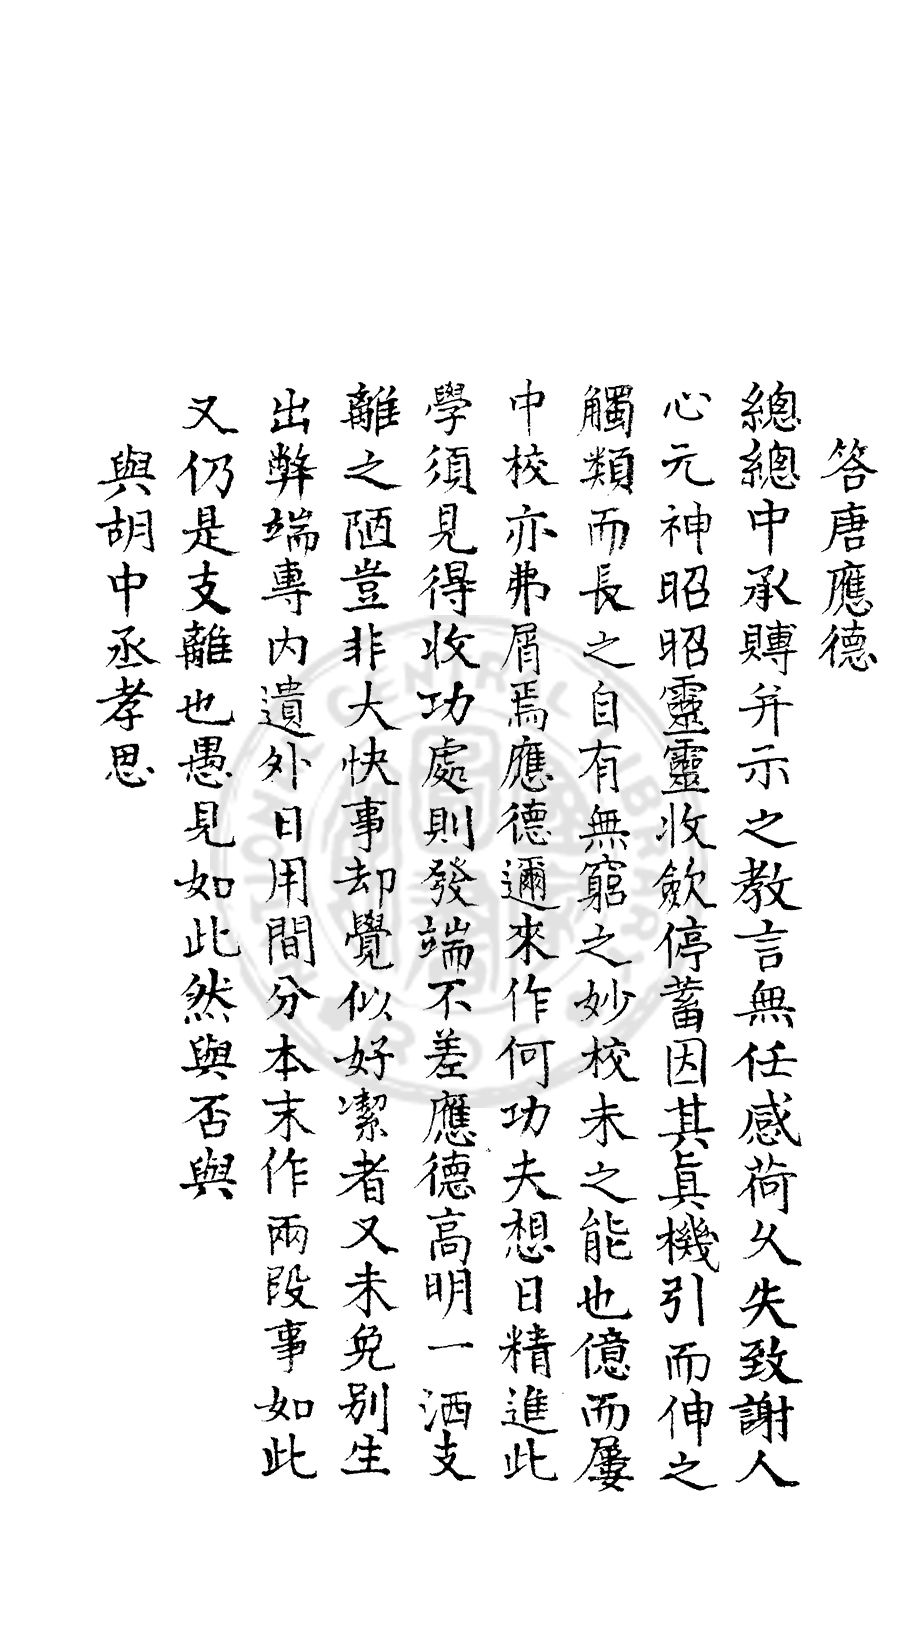 答唐應德
總總中承賻并示之教言無任感荷久失致謝人
心元神昭昭靈靈收歛停蓄因其眞機引而伸之
觸類而長之自有無窮之妙校未之能也億而屢
中校亦弗屑焉應德邇來作何功夫想日精進此
學須見得收功處則發端不差應德高明一洒支
離之陋豈非大快事却覺似好潔者又未免別生
出弊端專內遺外日用間分本末作兩段事如此
又仍是支離也愚見如此然與否與
與胡中丞孝思
CENTRAL LIBRARY